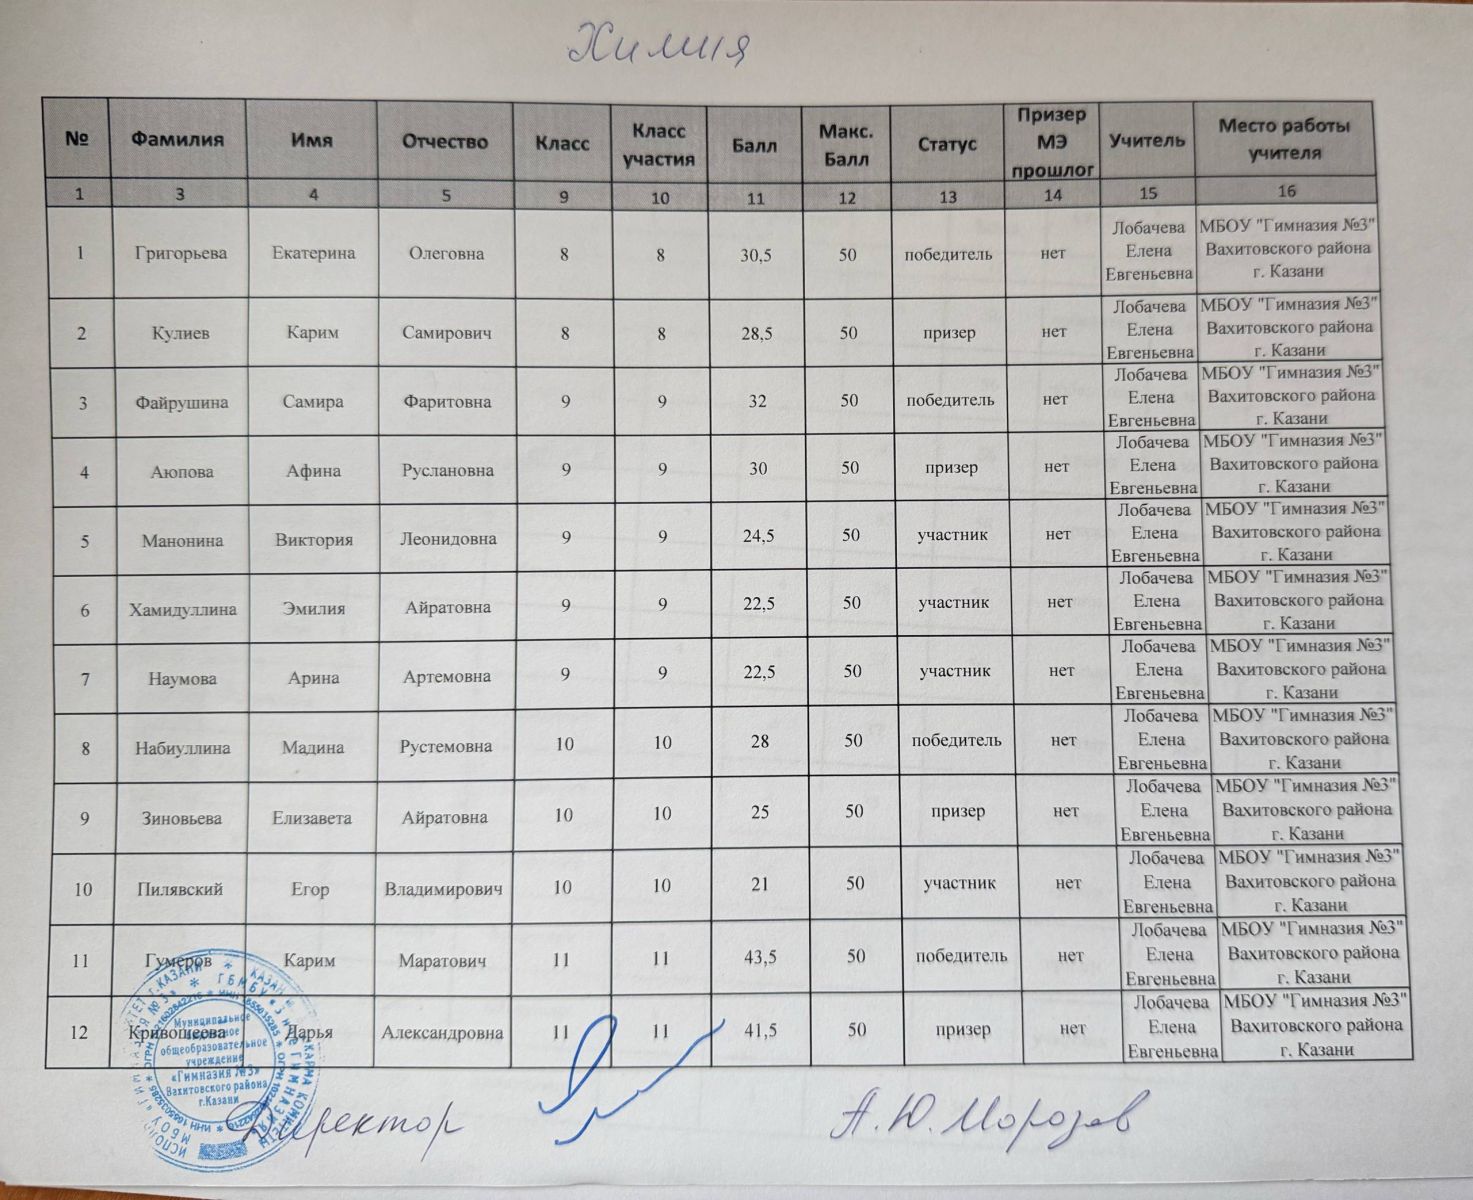 Химия
№ Фамилия Имя Отчество Класс Класс участия Балл Макс. Балл Статус Призер МЭ прошлог Учитель Место работы учителя
1 3 4 5 9 10 11 12 13 14 15 16
1 Григорьева Екатерина Олеговна 8 8 30,5 50 победитель нет Лобачева Елена Евгеньевна МБОУ "Гимназия №3" Вахитовского района г. Казани
2 Кулиев Карим Самирович 8 8 28,5 50 призер нет Лобачева Елена Евгеньевна МБОУ "Гимназия №3" Вахитовского района г. Казани
3 Файрушина Самира Фаритовна 9 9 32 50 победитель нет Лобачева Елена Евгеньевна МБОУ "Гимназия №3" Вахитовского района г. Казани
4 Аюпова Афина Руслановна 9 9 30 50 призер нет Лобачева Елена Евгеньевна МБОУ "Гимназия №3" Вахитовского района г. Казани
5 Манонина Виктория Леонидовна 9 9 24,5 50 участник нет Лобачева Елена Евгеньевна МБОУ "Гимназия №3" Вахитовского района г. Казани
6 Хамидуллина Эмилия Айратовна 9 9 22,5 50 участник нет Лобачева Елена Евгеньевна МБОУ "Гимназия №3" Вахитовского района г. Казани
7 Наумова Арина Артемовна 9 9 22,5 50 участник нет Лобачева Елена Евгеньевна МБОУ "Гимназия №3" Вахитовского района г. Казани
8 Набиуллина Мадина Рустемовна 10 10 28 50 победитель нет Лобачева Елена Евгеньевна МБОУ "Гимназия №3" Вахитовского района г. Казани
9 Зиновьева Елизавета Айратовна 10 10 25 50 призер нет Лобачева Елена Евгеньевна МБОУ "Гимназия №3" Вахитовского района г. Казани
10 Пилявский Егор Владимирович 10 10 21 50 участник нет Лобачева Елена Евгеньевна МБОУ "Гимназия №3" Вахитовского района г. Казани
11 Гумеров Карим Маратович 11 11 43,5 50 победитель нет Лобачева Елена Евгеньевна МБОУ "Гимназия №3" Вахитовского района г. Казани
12 Кривошеева Дарья Александровна 11 11 41,5 50 призер нет Лобачева Елена Евгеньевна МБОУ "Гимназия №3" Вахитовского района г. Казани
Муниципальное
общеобразовательное
учреждение
«Гимназия №3»
Вахитовского района
г.Казани
Директор А. Ю. Морозов